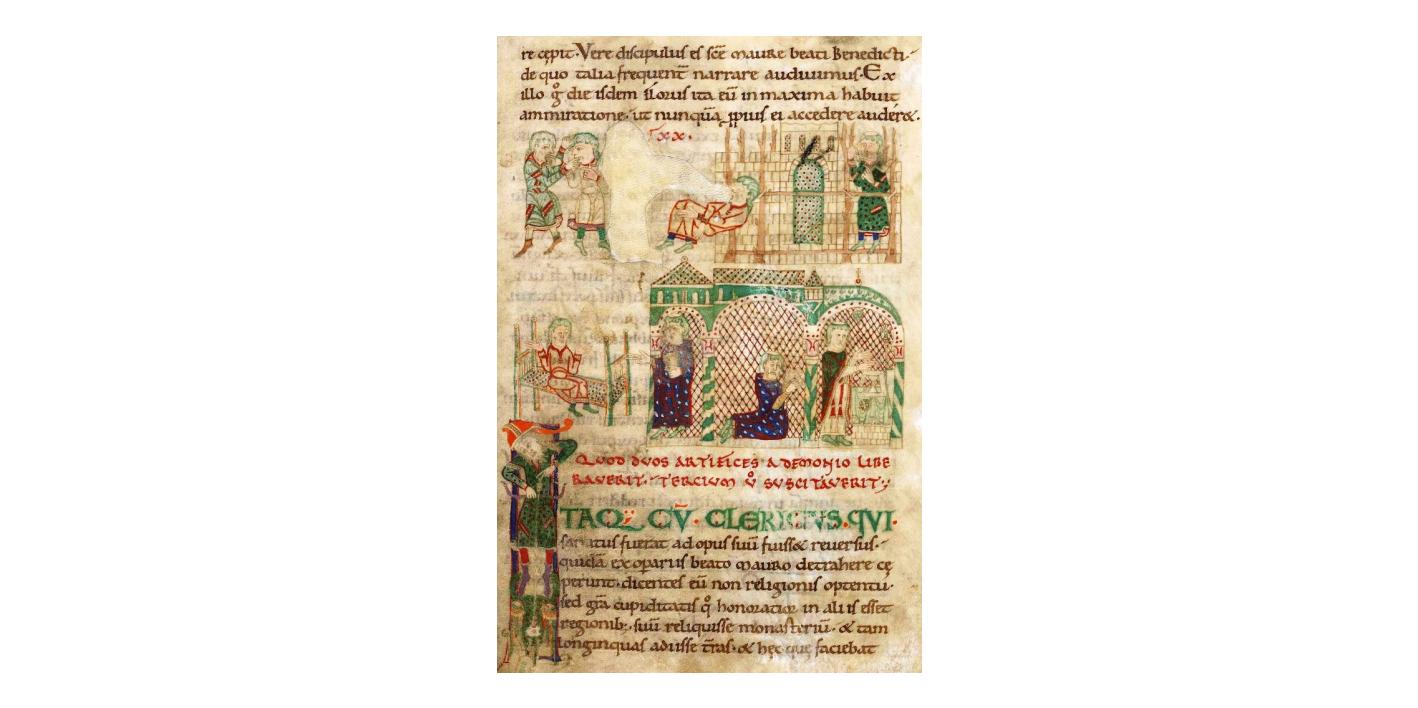 re cepit. Vere discipulus es sc̄e maure beati Benedicti.
de quo talia frequent̄ narrare audiuimus. Ex
illo g̊ die isdem florus ita eū in maxima habuit
ammiratione. ut nunquā ꝓpius ei accedere auderet.
XX.
QUOD DUOS ARTIFICES A DEMONIO LIBE
RAVERIT. TERCIUM SUSCITAVERIT
ITAQ; CŪ CLERICUS. QUI.
sanatus fuerat ad opus suū fuiss& reuersus.
quidā ex oparus beato mauro detrahere cę
perunt. dicentes eū non religionis optentu.
sed grā cupiditatis q̊ honoratior in aliis esset
regionib; suū reliquisse monasteriū. & tam
longinquas adiisse tr̄as. & hęc quę faciebat